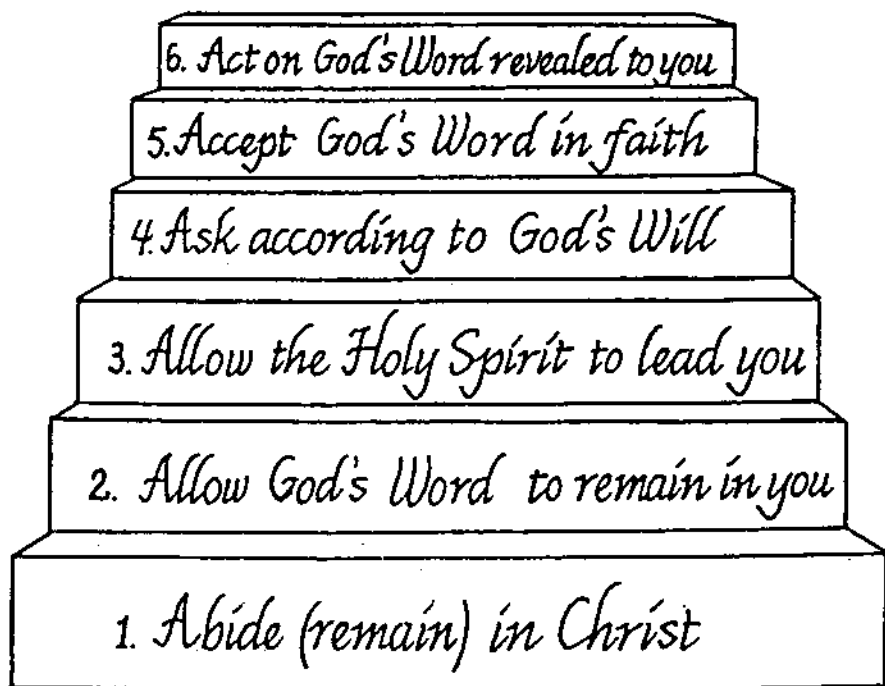 6. Act on God's Word revealed to you
5. Accept God's Word in faith
4. Ask according to God's Will
3. Allow the Holy Spirit to lead you
2. Allow God's Word to remain in you
1. Abide (remain) in Christ